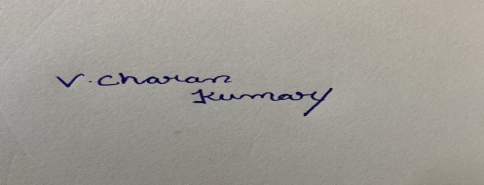 V. Charan
Kumary